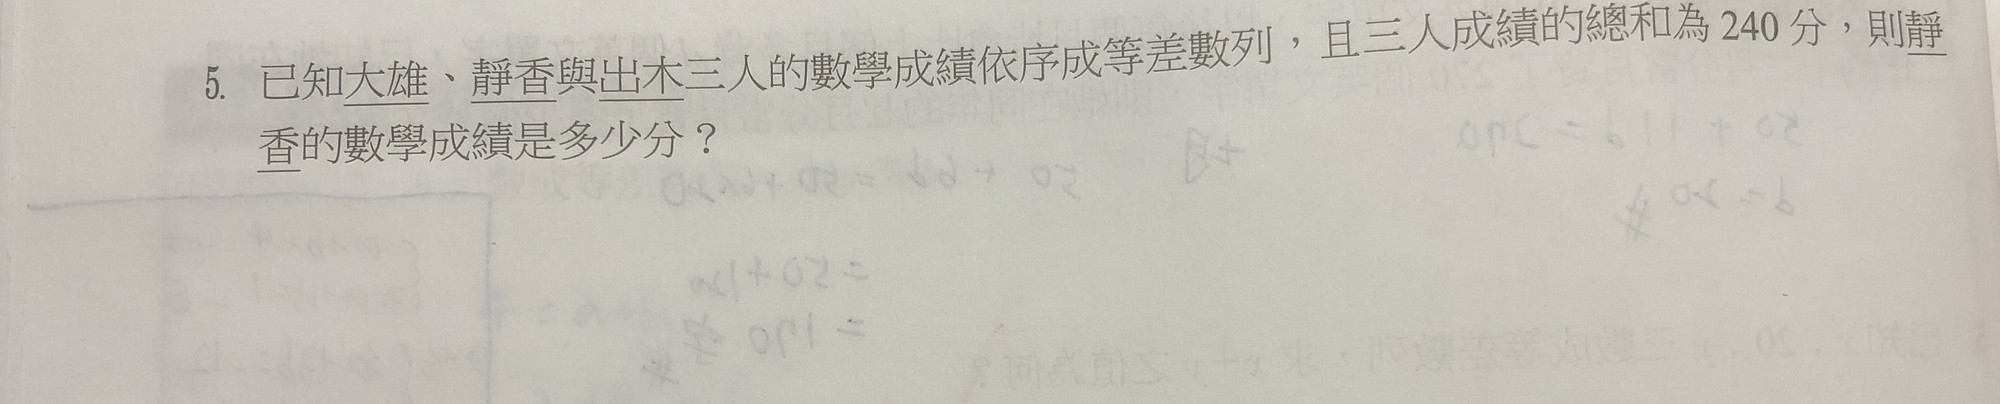 5. 已知大雄、靜香與出木三人的數學成績依序成等差數列，且三人成績的總和為 240 分，則靜
香的數學成績是多少分？